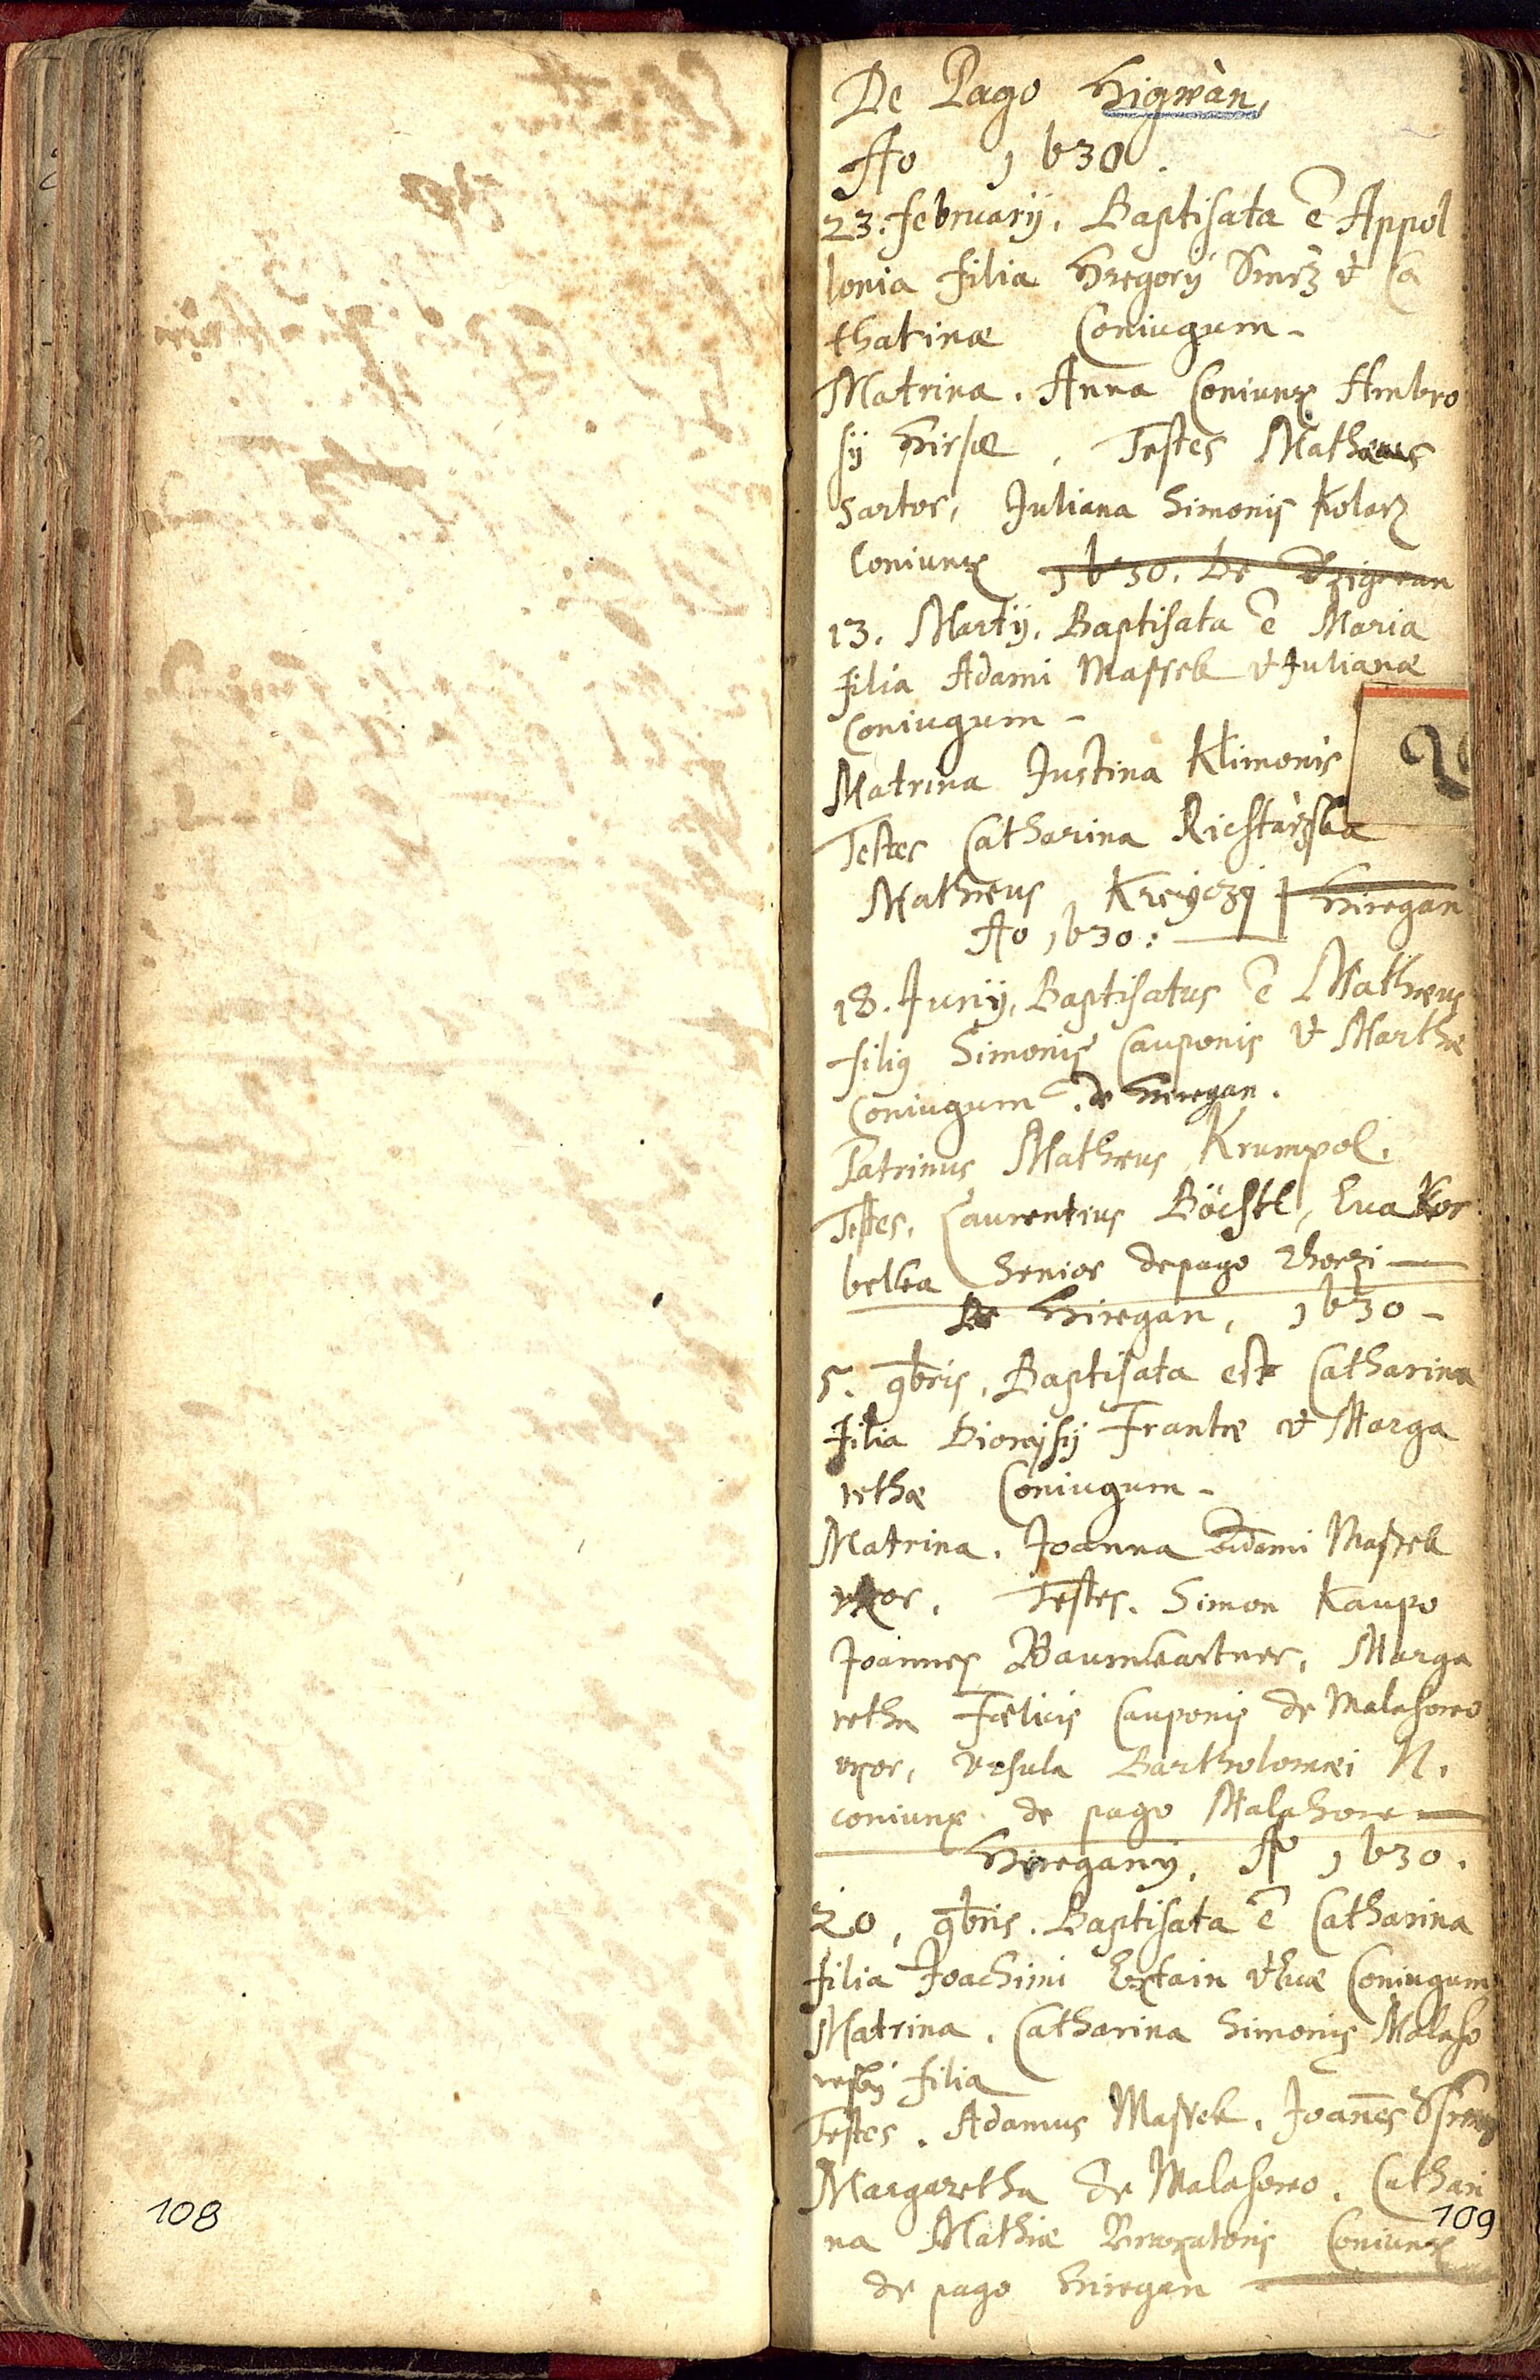 108
De Pago Higwàn,
Ao 1630.
23. februarij. Baptisata ē Appol
lonia filia Gregorij Smrz et Ca
tharinæ Coniugum -
Matrina. Anna Coniunx Ambro
sij Hirsæ, Testes Mathæus
Sartor, Juliana Simonis Kolarz
Coniunx 1630. De
13. Martij. Baptisata ē Maria
filia Adami Massek et Julianæ
Coniugum -
Matrina Justina Klimonis
Testes Catharina Richtarzska
Mathæus Kreyczy Hiregan
Ao 1630:
18. Junij, Baptisatus ē Mathæus
filius Simonis Cauponis et Marthæ
Coniugum. de Hiregan.
Patrinus Mathæus Krumpol.
Testes. Laurentius Böchl, Eua Kor
belka Senior de pago Zhorzi
De Hiregan, 1630 -
5. 9bris, Baptisata est Catharina
filia Dionysij Frantæ et Marga
rethæ Coniugum -
Matrina. Joanna Adami Massek
uxor. Testes. Simon Kaupo
Joannes Baumkartner, Marga
retha Fœlicis Cauponis de Malahowo
uxor, Vrsula Bartholomæi N.
coniunx de pago Malahowo
Hiregany. Ao 1630.
20, 9bris. Baptisata ē Catharina
filia Joachimi Extain et Euæ Coniugum
Matrina. Catharina Simonis Malaho
wsky filia
Testes. Adamus Massek. Joan̄es
Margaretha de Malahowo. Cathari
109
na Mathiæ Coniunx
de pago Hiregan